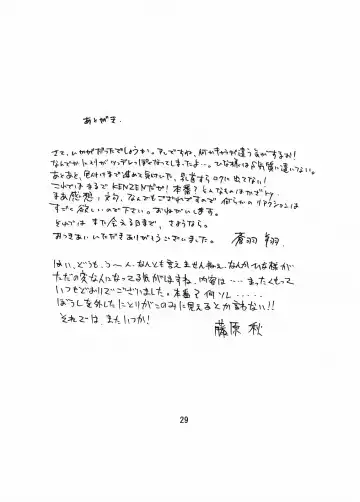 あとがき.
さて、いかがだったでしょうか。アレですね、何かキャラが違う気がするわ!
なんでか ツンデレっぽくなってしまったよ…。ひな様はS気質に違いない。
あとあと、色付けまで進めて気付いた、乳首すらロクに出てない!
これではまるでKENZENだが! 本番? そんなものはかざりだ
まあ感想、文句、なんでもござれですので 何らかのリアクションは
すごく欲しいので下さい。おねがいします。
それでは また会える日まで、さようなら。
おつきあいいただきありがとうございました。 蒼羽 翔.
はい、どうも。う〜ん、なんとも言えませんねぇ、なんかひな様が
ただの変な人になってる気がしますね、内容は… まったくもって
いつもどおりでございました。本番? 何ソレ・・・・・
ぼうしを外したことりがこのみに見えるとか言わない!!
それでは、またいつか!
藤原 秋
29